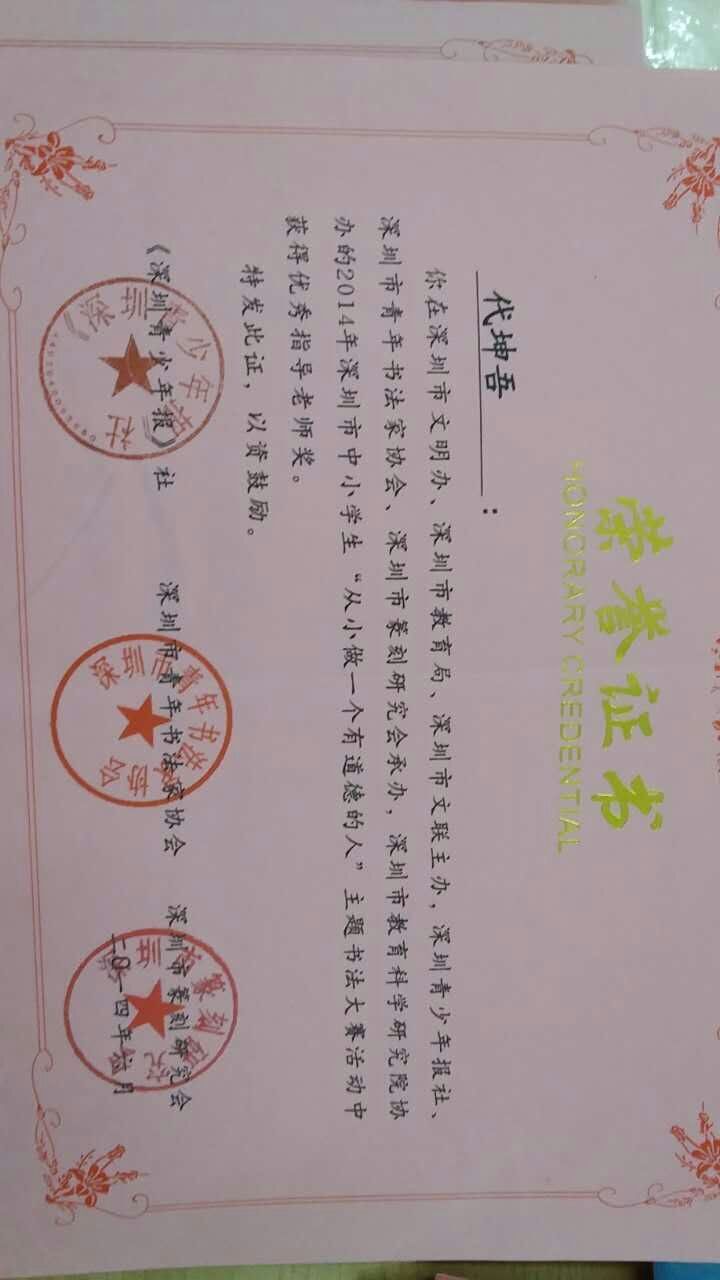 荣誉证书
HONORARY CREDENTIAL
代坤吾：
你在深圳市文明办、深圳市教育局、深圳市文联主办，深圳青少年报社、
深圳市青年书法家协会、深圳市篆刻研究会承办，深圳市教育科学研究院协
办的2014年深圳市中小学生“从小做一个有道德的人”主题书法大赛活动中
获得优秀指导老师奖。
特发此证，以资鼓励。
《深圳青少年报》社 深圳市青年书法家协会 深圳市篆刻研究会
二0一四年 月